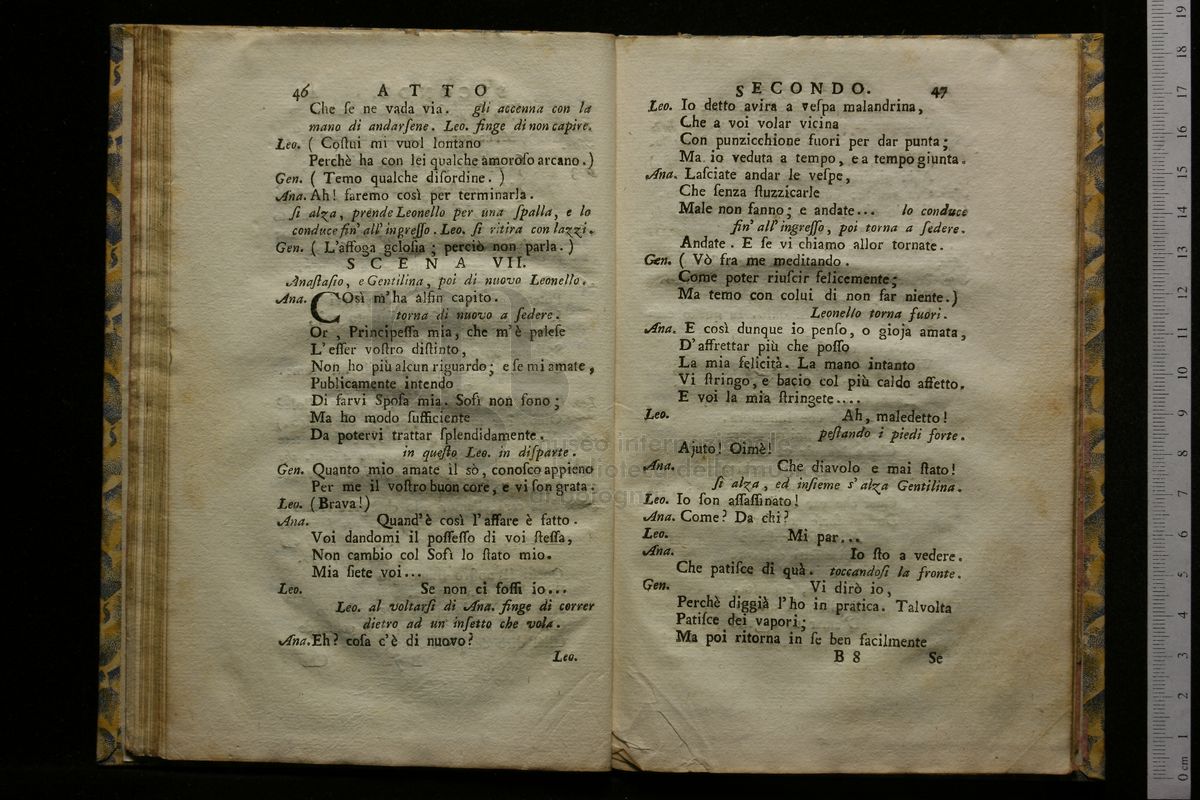 46 ATTO
Che ſe ne vada via. gli accenna con la
mano di andarſene. Leo. finge di non capire.
Leo. ( Coſtui mi vuol lontano
Perchè ha con lei qualche amoroſo arcano.)
Gen. ( Temo qualche diſordine. )
Ana. Ah! faremo così per terminarla.
ſi alza, prende Leonello per una ſpalla, e lo
conduce fin' all' ingreſſo. Leo. ſi ritira con lazzi.
Gen. ( L'affoga geloſia ; perciò non parla. )
SCENA VII.
Anaſtaſio, e Gentilina, poi di nuovo Leonello.
Ana. COsì m'ha alfin capito.
torna di nuovo a ſedere.
Or , Principeſſa mia, che m'è paleſe
L'eſſer voſtro diſtinto,
Non ho più alcun riguardo; e ſe mi amate,
Publicamente intendo
Di farvi Spoſa mia. Sofì non ſono;
Ma ho modo ſufficiente
Da potervi trattar ſplendidamente.
in queſto Leo. in diſparte.
Gen. Quanto mio amate il sò, conoſco appieno
Per me il voſtro buon core, e vi ſon grata.
Leo. (Brava!)
Ana. Quand'è così l'affare è fatto.
Voi dandomi il poſſeſſo di voi ſteſſa,
Non cambio col Sofì lo ſtato mio.
Mia ſiete voi...
Leo. Se non ci foſſi io...
Leo. al voltarſi di Ana. finge di correr
dietro ad un inſetto che vola.
Ana. Eh? coſa c'è di nuovo?
Leo.
SECONDO. 47
Leo. Io detto avira a veſpa malandrina,
Che a voi volar vicina
Con punzicchione fuori per dar punta;
Ma io veduta a tempo, e a tempo giunta.
Ana. Laſciate andar le veſpe,
Che ſenza ſtuzzicarle
Male non fanno; e andate... lo conduce
fin' all' ingreſſo, poi torna a ſedere.
Andate. E ſe vi chiamo allor tornate.
Gen. ( Vò fra me meditando.
Come poter riuſcir felicemente;
Ma temo con colui di non far niente.)
Leonello torna fuori.
Ana. E così dunque io penſo, o gioja amata,
D'affrettar più che poſſo
La mia felicità. La mano intanto
Vi ſtringo, e bacio col più caldo affetto.
E voi la mia ſtringete....
Leo. Ah, maledetto!
peſtando i piedi forte.
Ajuto! Oimè!
Ana. Che diavolo e mai ſtato!
ſi alza, ed inſieme s'alza Gentilina.
Leo. Io ſon aſſaſſinato!
Ana. Come? Da chi?
Leo. Mi par...
Ana. Io ſto a vedere.
Che patiſce di quà. toccandoſi la fronte.
Gen. Vi dirò io,
Perchè diggià l'ho in pratica. Talvolta
Patiſce dei vapori;
Ma poi ritorna in ſe ben facilmente
B 8 Se